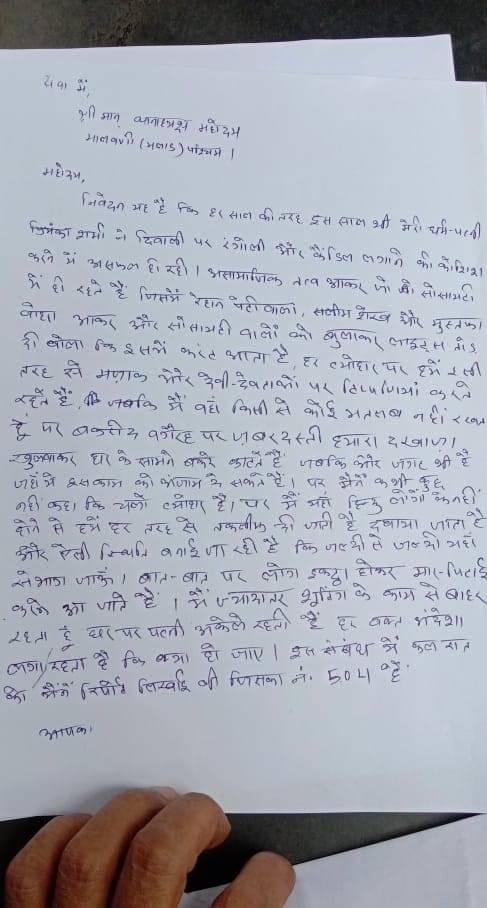 सेवा में,
श्री मान् थानाध्यक्ष महोदय
मालवणी (मलाड) पश्चिम ।
महोदय,
निवेदन यह है कि हर साल की तरह इस साल भी मेरी धर्म-पत्नी
शर्मा ने दिवाली पर रंगोली और कैंडिल लगाने की कोशिश
करने में असफल ही रही । असामाजिक तत्व आकर जो सोसायटी
में ही रहते हैं जिसमें रेहान पेटीवाला, सलीम शेख और मुस्तफा
आकर और सोसायटी वालों को बुलाकर लाइट्स तोड़
दी बोला कि इसमें करंट आता है, हर त्योहार पर हमें इसी
तरह से मजाक और देवी-देवताओं पर टिप्पणियां करते
रहते हैं, जबकि मैं वहाँ किसी से कोई मतलब नहीं रखता
हूँ पर बकरीद वगैरह पर जबरदस्ती हमारा दरवाजा
खुलवाकर घर के सामने बकरे काटते हैं जबकि और जगह भी है
जहाँ ये इस काम को अंजाम दे सकते हैं । पर मैंने कभी कुछ
नहीं कहा कि चलो त्योहार है, पर में यहाँ हिन्दू लोगों के नहीं
होने से हमें हर तरह से तकलीफ दी जाती है दबाया जाता है
और ऐसी स्थिति बनाई जा रही है कि जल्दी से जल्दी यहाँ
से भाग जाऊँ । बात-बात पर लोग इकट्ठा होकर मार-पिटाई
करने आ जाते हैं । मैं ज्यादातर शूटिंग के काम से बाहर
रहता हूँ घर पर पत्नी अकेले रहती हैं हर वक्त अंदेशा
लगा रहता है कि क्या हो जाए । इस संबंध में कल रात
को मैंने रिपोर्ट लिखाई थी जिसका नं. 504 है
आपका